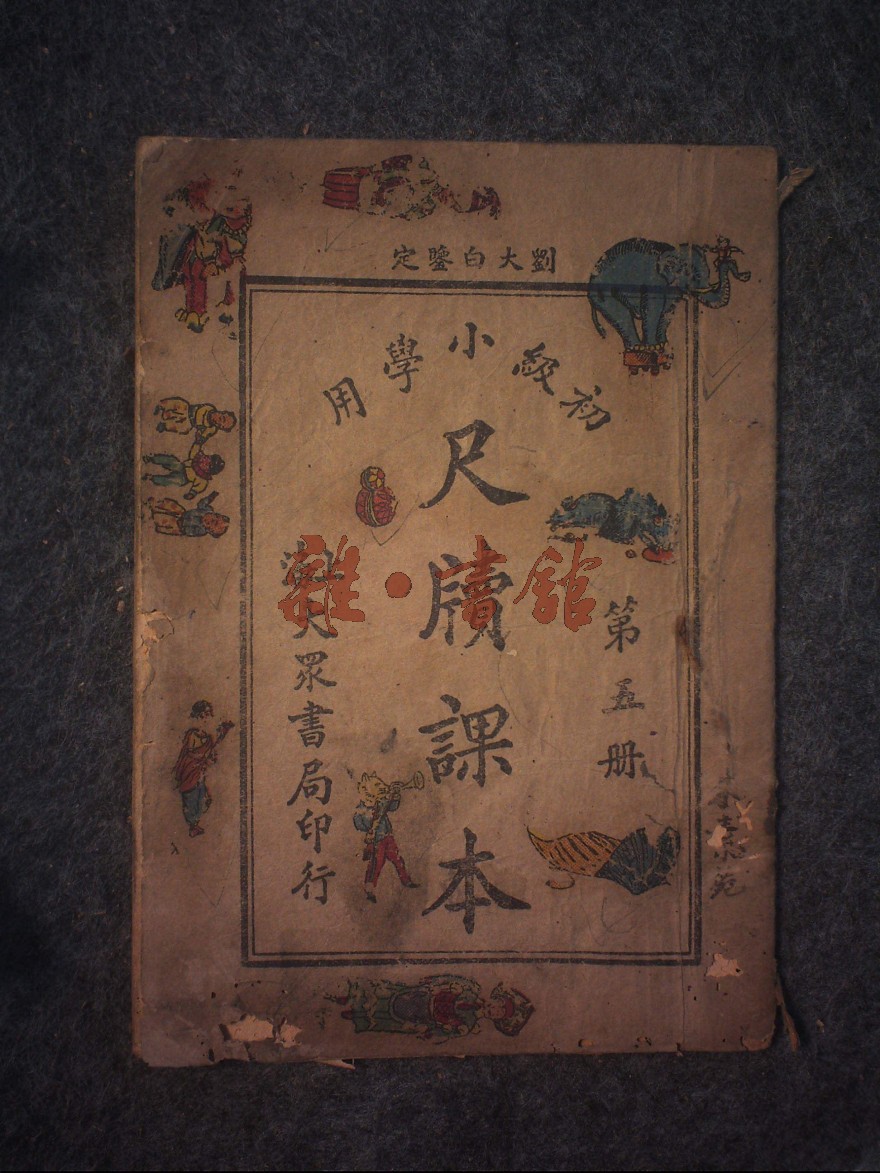 劉大白鑒定
初級小學用
第五册
尺牘課本
大眾書局印行
雜·書館